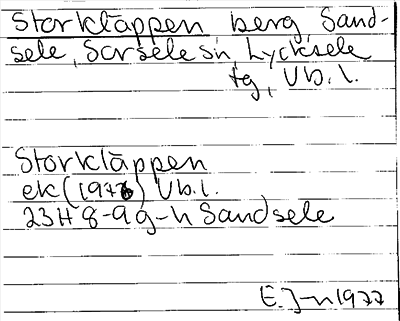 Storkläppen, berg, Sand-
sele, Sorsele sn, Lycksele
tg, Vb. l.
Storkläppen
ek (1976) Vb. l.
23H 8-9 g-h Sandsele
E. J-n 1977